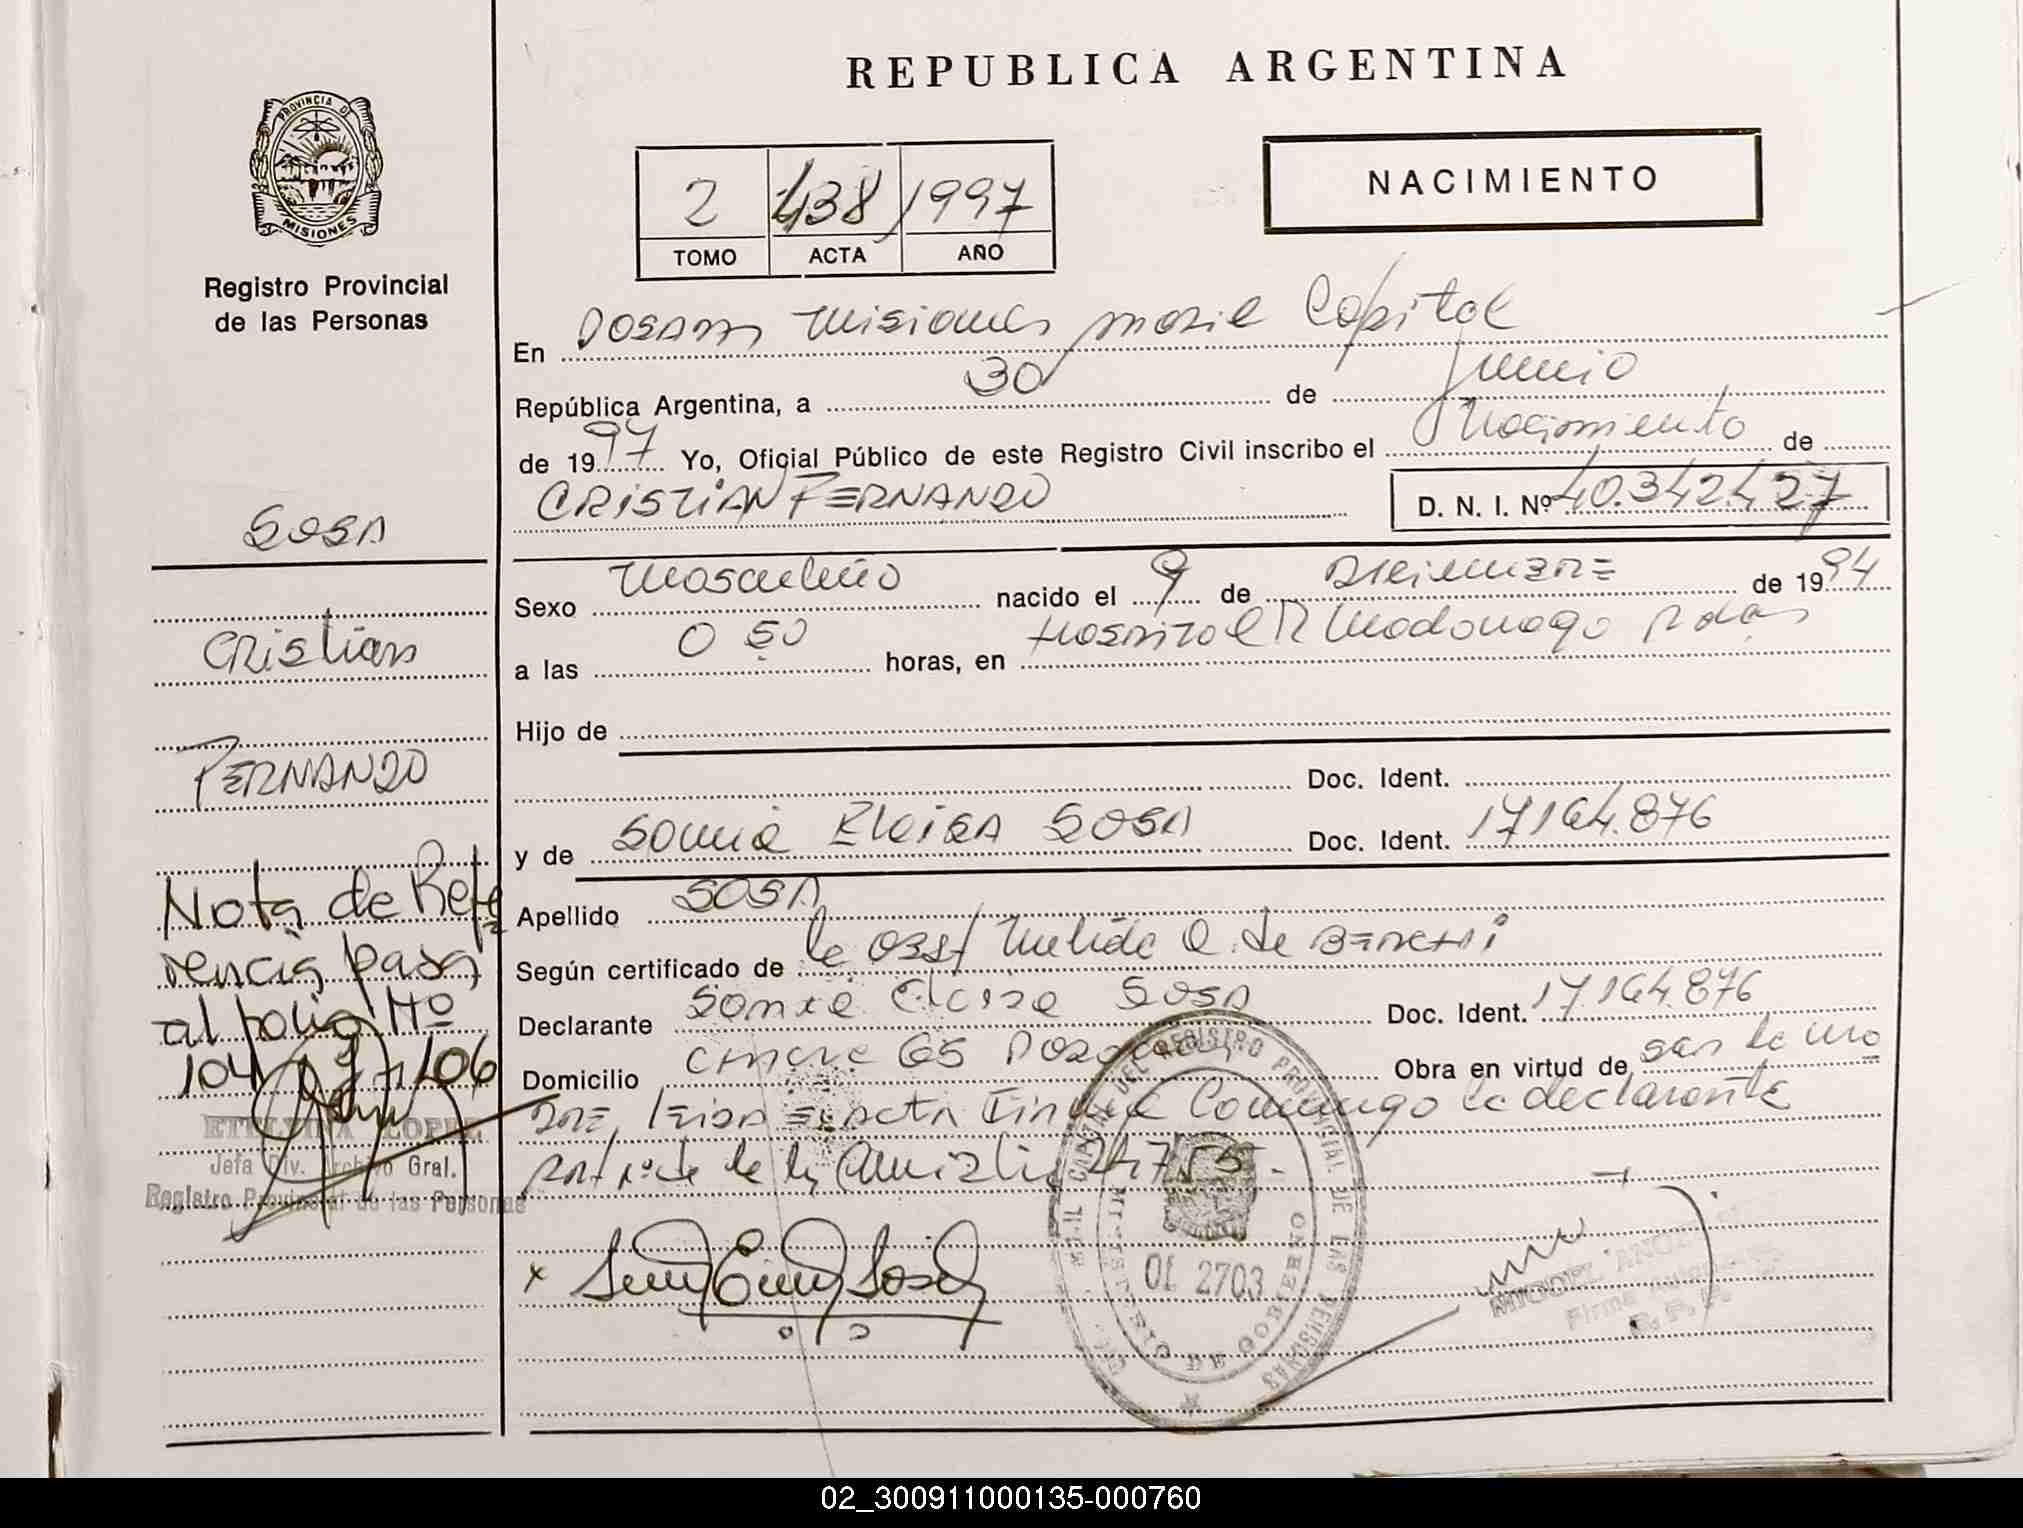 REPUBLICA ARGENTINA
PROVINCIA DE
MISIONES
Registro Provincial
de las Personas
2 438 1997
TOMO ACTA AÑO
NACIMIENTO
En Posadas Misiones Capital
República Argentina, a 30 de Junio
de 1997 Yo, Oficial Público de este Registro Civil inscribo el Nacimiento de
CRISTIAN FERNANDO D. N. I. Nº 40.342.427
SOSA
Cristian
FERNANDO
Sexo Masculino nacido el 9 de Diciembre de 1994
a las 0 50 horas, en Hospital R Madariaga Pdas
Hijo de
Doc. Ident.
y de Sonia Eloisa SOSA Doc. Ident. 17164.876
Apellido SOSA
Según certificado de la Obst Nelida de
Declarante Sonia Eloisa SOSA Doc. Ident. 17.164.876
Domicilio 65 Posadas Obra en virtud de ser la
leida el acta conmigo la declarante
de la ley Amnistia 24755-
Nota de Refe
rencia pasa
al folio Nº
104 /06
ETELVINA LOPEZ
Jefa Div. Archivo Gral.
Registro Provincial de las Personas
x
DEL REGISTRO PROVINCIAL DE LAS PERSONAS
MINISTERIO DE GOBIERNO
01 2703
MIGUEL
Firma
R. P. P.
02_300911000135-000760